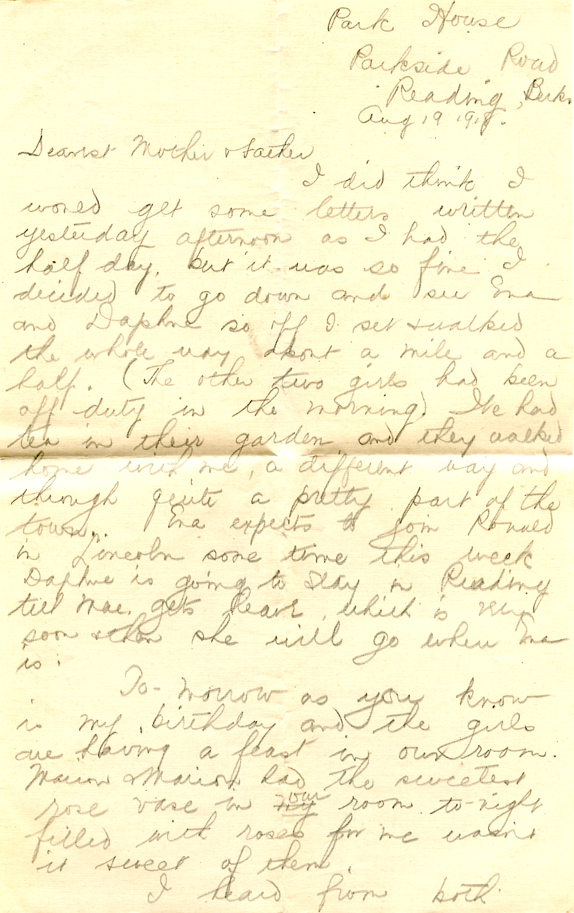 Park House
Parkside Road
Reading, Berks.
Aug 19 1918.
Dearest Mother & Father
I did think I
woned get some letters written
yesterday afternoon as I had the
half day, but it was so fine I
decided to go down and see Ena
and Daphne so off I set & walked
the whole way about a mile and a
half. (The other two girls had been
off duty in the morning) We had
tea in their garden and they walked
home with me, a different way and
through quite a pretty part of the
town. Ena expects to join Ronald
in Lincoln some time this week
Daphne is going to stay in Reading
till Mac gets leave, which is very
soon & then she will go when Ena
is.
To-morrow as you know
is my birthday and the girls
are having a feast in our room.
Marion & Marion had the sweetest
rose vase in my our room to-night
filled with roses for me wasn't
it sweet of them.
I heard from both